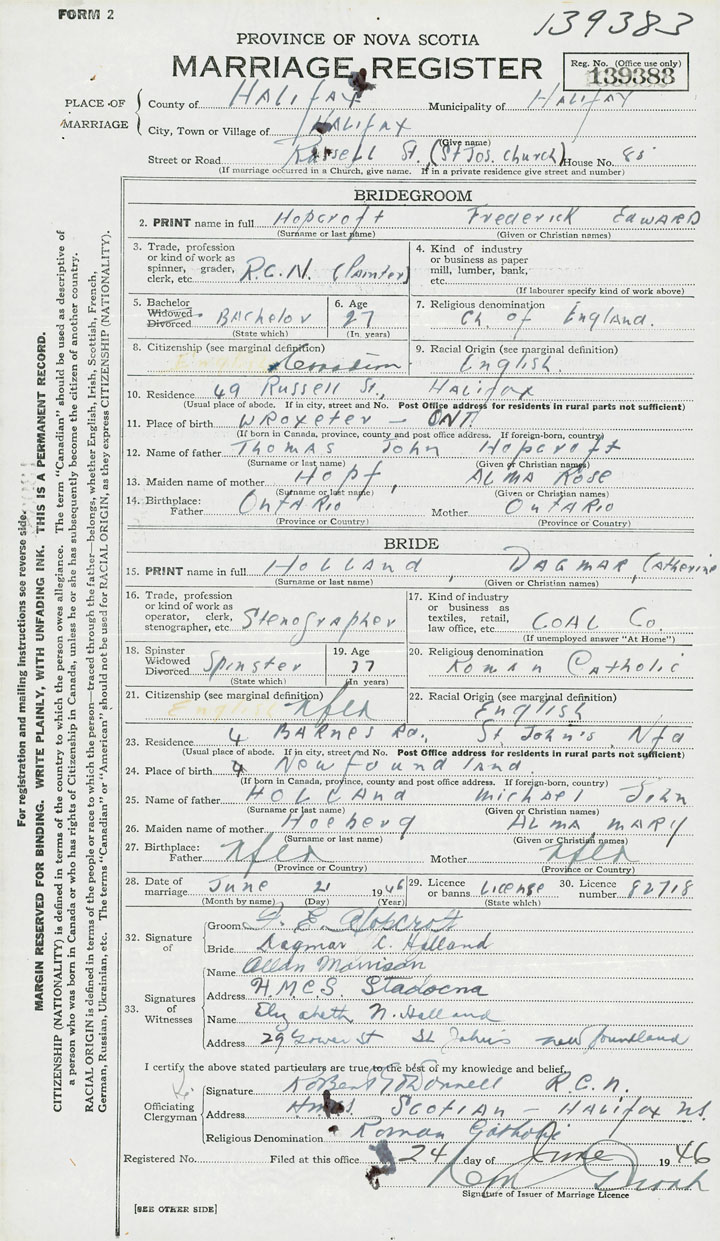 FORM 2
139383
PROVINCE OF NOVA SCOTIA
MARRIAGE REGISTER
Reg. No. (Office use only)
139383
PLACE OF MARRIAGE
County of HALIFAX Municipality of HALIFAX
City, Town or Village of HALIFAX
(Give name)
Street or Road Russell St. (St Jos. Church) House No. 85
(If marriage occurred in a Church, give name. If in a private residence give street and number)
BRIDEGROOM
2. PRINT name in full Hopcroft Frederick EDWARD
(Surname or last name) (Given or Christian names)
3. Trade, profession or kind of work as spinner, grader, clerk, etc. R.C.N. (Painter)
4. Kind of industry or business as paper mill, lumber, bank, etc.
(If labourer specify kind of work above)
5. Bachelor Widowed Divorced BAChelor
(State which)
6. Age 27
(In years)
7. Religious denomination Ch. of England.
8. Citizenship (see marginal definition) English Canadian
9. Racial Origin (see marginal definition) English.
10. Residence 49 Russell St., Halifax
(Usual place of abode. If in city, street and No. Post Office address for residents in rural parts not sufficient)
11. Place of birth WROXETER - ONT.
(If born in Canada, province, county and post office address. If foreign-born, country)
12. Name of father Thomas John Hopcroft
(Surname or last name) (Given or Christian names)
13. Maiden name of mother Hopf, ALMA ROSE
(Surname or last name) (Given or Christian names)
14. Birthplace: Father ONTARIO Mother ONTARIO
(Province or Country) (Province or Country)
BRIDE
15. PRINT name in full HOLLAND, DAGMAR, Catherine
(Surname or last name) (Given or Christian names)
16. Trade, profession or kind of work as operator, clerk, stenographer, etc. Stenographer
17. Kind of industry or business as textiles, retail, law office, etc. COAL Co.
(If unemployed answer "At Home")
18. Spinster Widowed Divorced Spinster
(State which)
19. Age
(In years)
20. Religious denomination Roman Catholic
21. Citizenship (see marginal definition) English Nfld
22. Racial Origin (see marginal definition) English
23. Residence 4 BARNES Rd., St John's, Nfd
(Usual place of abode. If in city, street and No. Post Office address for residents in rural parts not sufficient)
24. Place of birth Newfoundland
(If born in Canada, province, county and post office address. If foreign-born, country)
25. Name of father HOLLAND Michael John
(Surname or last name) (Given or Christian names)
26. Maiden name of mother Hoeberg ALMA MARY
(Surname or last name) (Given or Christian names)
27. Birthplace: Father Nfld Mother Nfld
(Province or Country) (Province or Country)
28. Date of marriage June 21 1946
(Month by name) (Day) (Year)
29. Licence or banns License
(State which)
30. Licence number 82718
32. Signature of
Groom F. E. Hopcroft
Bride Dagmar C. Holland
33. Signatures of Witnesses
Name Allan Morrison
Address H.M.C.S. Stadacna
Name Elizabeth N. Holland
Address 29 Gower St St. John's newfoundland
I certify the above stated particulars are true to the best of my knowledge and belief.
Officiating Clergyman
Signature R.C.N.
Address HMCS SCOTIAN - HALIFAX NS.
Religious Denomination Roman Catholic
Registered No. Filed at this office 24 day of June 1946
Signature of Issuer of Marriage Licence
[SEE OTHER SIDE]
For registration and mailing instructions see reverse side.
MARGIN RESERVED FOR BINDING. WRITE PLAINLY, WITH UNFADING INK. THIS IS A PERMANENT RECORD.
CITIZENSHIP (NATIONALITY) is defined in terms of the country to which the person owes allegiance. The term "Canadian" should be used as descriptive of
a person who was born in Canada or who has rights of Citizenship in Canada, unless he or she has subsequently become the citizen of another country.
RACIAL ORIGIN is defined in terms of the people or race to which the person—traced through the father—belongs, whether English, Irish, Scottish, French,
German, Russian, Ukrainian, etc. The terms "Canadian" or "American" should not be used for RACIAL ORIGIN, as they express CITIZENSHIP (NATIONALITY).